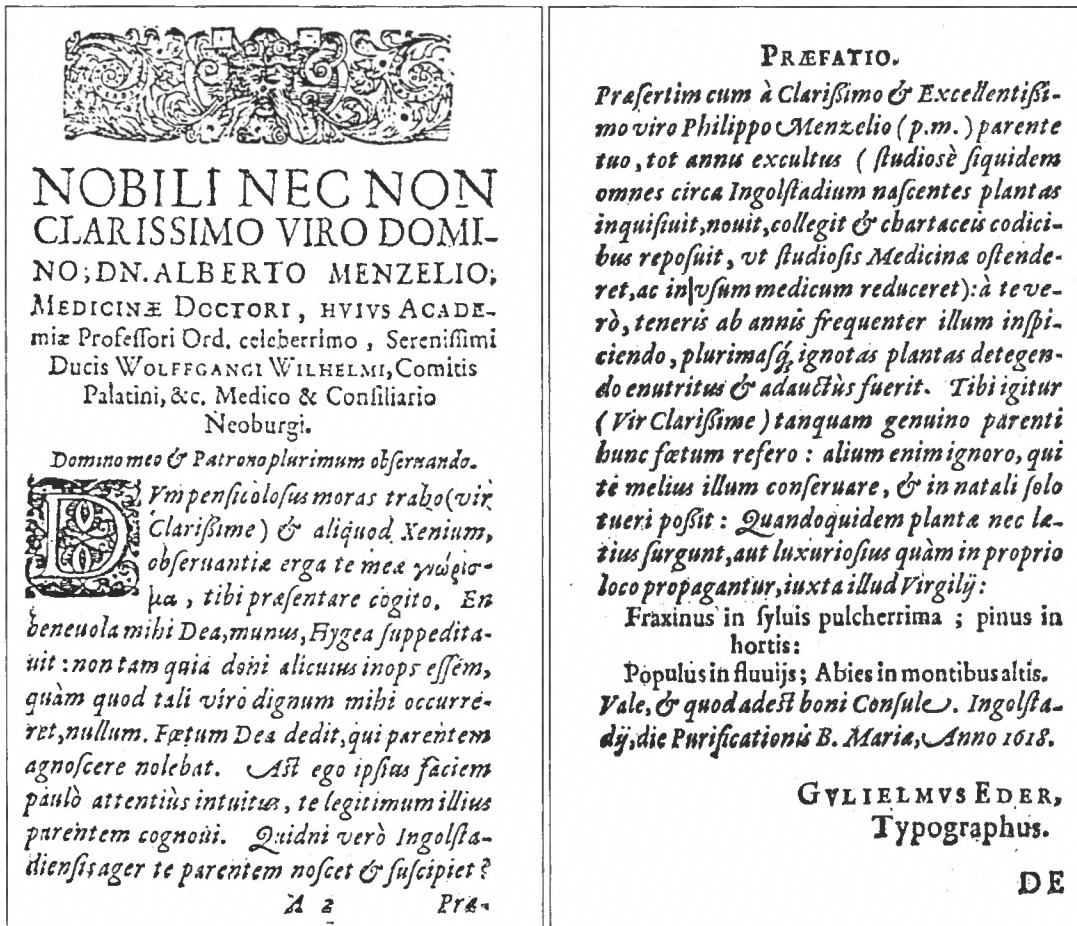 NOBILI NEC NON
CLARISSIMO VIRO DOMI-
NO; DN. ALBERTO MENZELIO;
MEDICINÆ DOCTORI, HVIVS ACADE-
miæ Professori Ord. celeberrimo, Serenissimi
Ducis WOLFFGANGI WILHELMI, Comitis
Palatini, &c. Medico & Consiliario
Neoburgi.
Domino meo & Patrono plurimum obseruando.
DVm pensicolosus moras traho (vir
Clarißime) & aliquod Xenium,
obseruantiæ erga te meæ γνώρισ-
μα, tibi præsentare cogito. En
beneuola mihi Dea, munus, Hygea suppedita-
uit: non tam quia doni alicuius inops essem,
quàm quod tali viro dignum mihi occurre-
ret, nullum. Fœtum Dea dedit, qui parentem
agnoscere nolebat. Ast ego ipsius faciem
paulò attentiùs intuitus, te legitimum illius
parentem cognoui. Quidni verò Ingolsta-
diensis ager te parentem noscet & suscipiet?
A 2 Præ-
PRÆFATIO.
Præsertim cum à Clarißimo & Excellentißi-
mo viro Philippo Menzelio (p.m.) parente
tuo, tot annis excultus (studiosè siquidem
omnes circa Ingolstadium nascentes plantas
inquisiuit, nouit, collegit & chartaceis codici-
bus reposuit, vt studiosis Medicinæ ostende-
ret, ac in vsum medicum reduceret): à te ve-
rò, teneris ab annis frequenter illum inspi-
ciendo, plurimasq́; ignotas plantas detegen-
do enutritus & adauctùs fuerit. Tibi igitur
(Vir Clarißime) tanquam genuino parenti
hunc fœtum refero: alium enim ignoro, qui
te melius illum conseruare, & in natali solo
tueri poßit: Quandoquidem plantæ nec læ-
tius surgunt, aut luxuriosius quàm in proprio
loco propagantur, iuxta illud Virgilij:
Fraxinus in syluis pulcherrima; pinus in
hortis:
Populus in fluuijs; Abies in montibus altis.
Vale, & quod adest boni Consule. Ingolsta-
dij, die Purificationis B. Mariæ, Anno 1618.
GVLIELMVS EDER,
Typographus.
DE